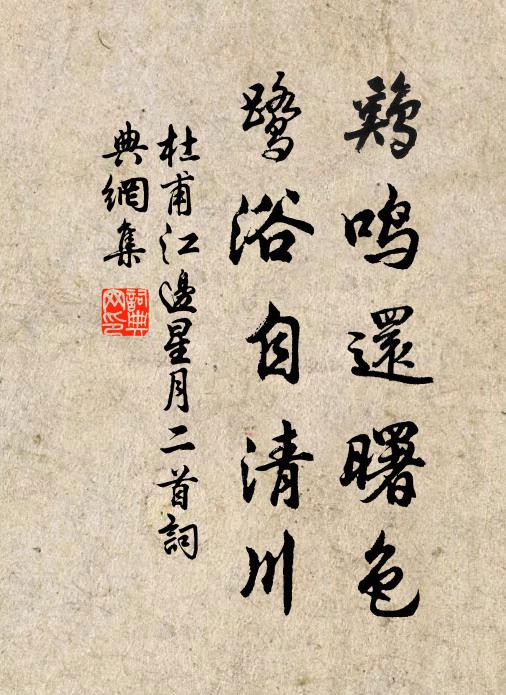 鷄鳴還曙色
鷺浴自清川
杜甫江邊星月二首詞
典網集
詞典
网印